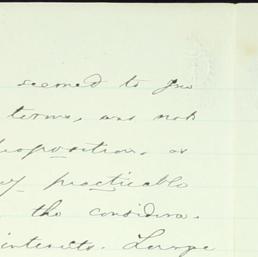 seemed to
terms, was not
proposition, or
practicable
the considera-
interests. Large